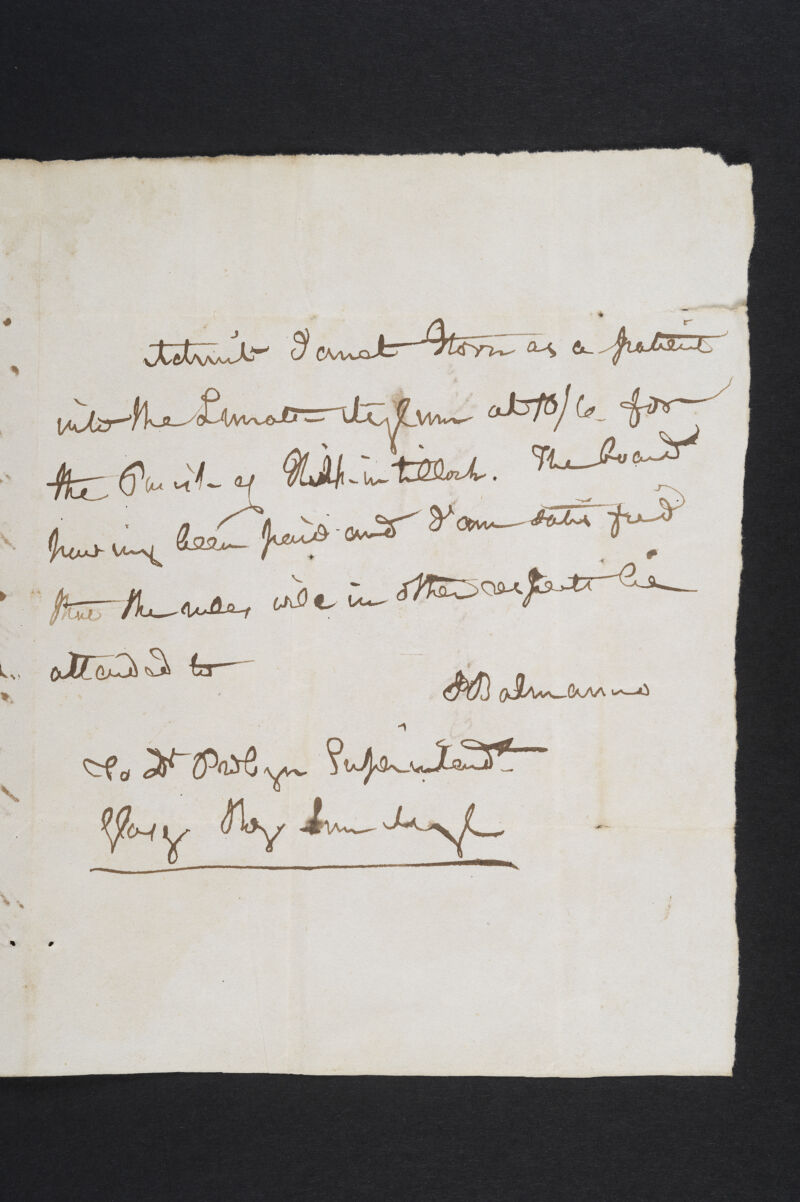 Admit Janet Horn as a patient
into the Lunatic Asylum at 10/6 for
the Parish of Kirkintilloch. The board
having been paid and I am satisfied
that the rules will in other respects be
attended to
J Balmanno
To Dr Problyn Superintendt
Glasg Roy Lun Asyl